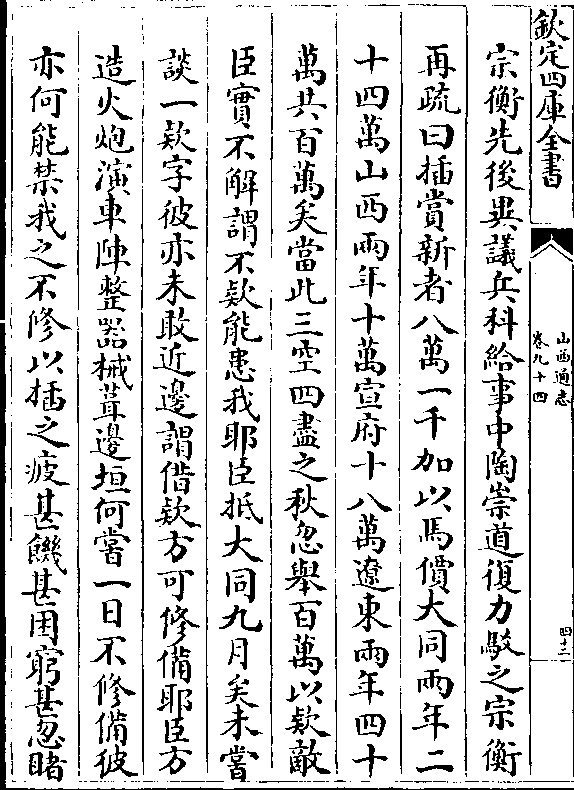 欽定四庫全書
山西通志
卷九十四
四十三
宗衡先後異議兵科給事中陶崇道復力駁之宗衡
再疏曰插賞新者八萬一千加以馬價大同兩年二
十四萬山西兩年十萬宣府十八萬遼東兩年四十
萬共百萬矣當此三空四盡之秋忽舉百萬以欵敵
臣實不解謂不欵能患我耶臣抵大同九月矣未嘗
談一欵字彼亦未敢近邊謂借欵方可修備耶臣方
造火炮演車陣整器械葺邊垣何嘗一日不修備彼
亦何能禁我之不修以插之疲甚饑甚困窮甚忽睹